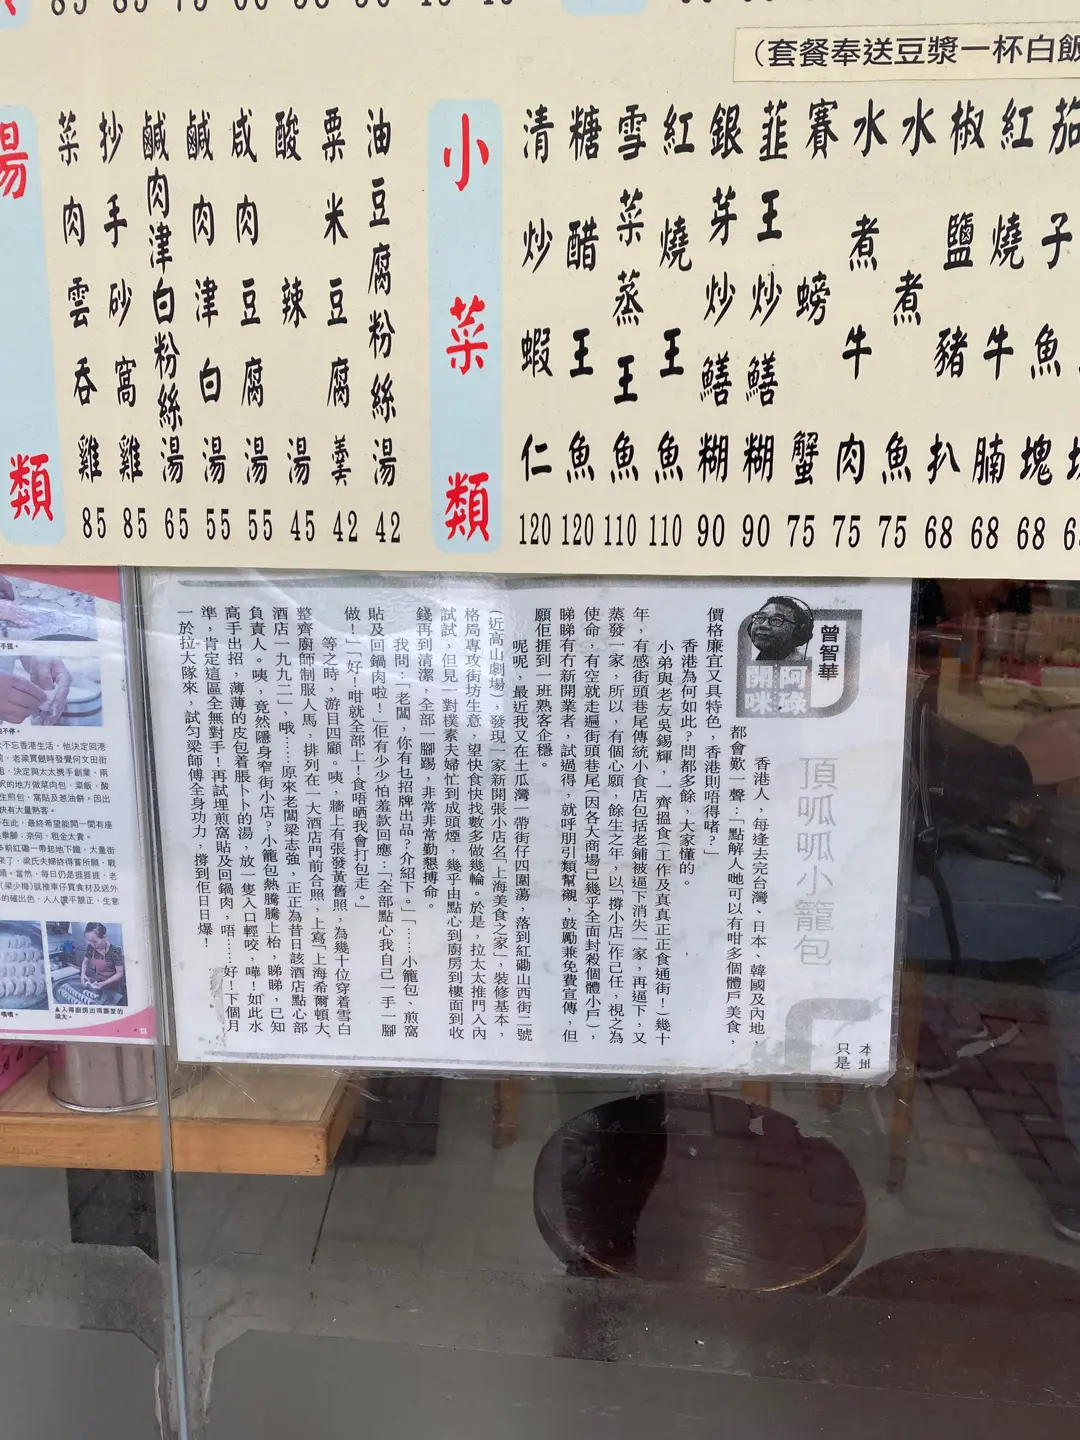 (套餐奉送豆漿一杯白飯
湯類
油豆腐粉絲湯 42
粟米豆腐羹 42
酸辣湯 45
咸肉豆腐湯 55
鹹肉津白湯 55
鹹肉津白粉絲湯 65
抄手砂窩雞 85
菜肉雲吞雞 85
小菜類
清炒蝦仁 120
糖醋王魚 120
雪菜蒸王魚 110
紅燒王魚 110
銀芽炒鱔糊 90
韮王炒鱔糊 90
賽螃蟹 75
水煮牛肉 75
水煮魚 75
椒鹽豬扒 68
紅燒牛腩 68
茄子魚塊 68
曾智華
阿碌開咪
頂呱呱小籠包
香港人，每逢去完台灣、日本、韓國及內地，
都會歎一聲：「點解人哋可以有咁多個體戶美食，
價格廉宜又具特色，香港則唔得嘅？」
香港為何如此？問都多餘，大家懂的。
小弟與老友吳錫輝，一齊搵食(工作及真真正正食通街！)幾十
年，有感街頭巷尾傳統小食店包括老鋪被逼下消失一家，再逼下，又
蒸發一家，所以，有個心願，餘生之年，以「撐小店」作己任，視之為
使命，有空就走遍街頭巷尾(因各大商場已幾乎全面封殺個體小戶)，
睇睇有冇新開業者，試過得，就呼朋引類幫襯，鼓勵兼免費宣傳，但
願佢捱到一班熟客企穩。
呢呢，最近我又在土瓜灣一帶街仔四圍蕩，落到紅磡山西街二號
(近高山劇場)，發現一家新開張小店名「上海美食之家」，裝修基本，
格局專攻街坊生意，望快食快找數多做幾輪。於是，拉太太推門入內
試試，但見一對樸素夫婦忙到成頭煙，幾乎由點心到廚房到樓面到收
錢再到清潔，全部一腳踢，非常非常勤懇搏命。
我問：「老闆，你有乜招牌出品？介紹下。」「……小籠包、煎窩
貼及回鍋肉啦！」佢有少少怕羞款回應：「全部點心我自己一手一腳
做！」「好！咁就全部上！食唔晒我會打包走。」
等之時，游目四顧。咦，牆上有張發黃舊照，為幾十位穿着雪白
整齊廚師制服人馬，排列在一大酒店門前合照，上寫「上海希爾頓大
酒店一九九二」，哦……原來老闆梁志強，正正為昔日該酒店點心部
負責人。咦，竟然隱身窄街小店？小籠包熱騰騰上枱，睇睇，已知
高手出招，薄薄的皮包着脹卜卜的湯，放一隻入口輕咬，嘩！如此水
準，肯定這區全無對手！再試埋煎窩貼及回鍋肉，唔……好！下個月
一於拉大隊來，試勻梁師傅全身功力，撐到佢日日爆！
本地
只是